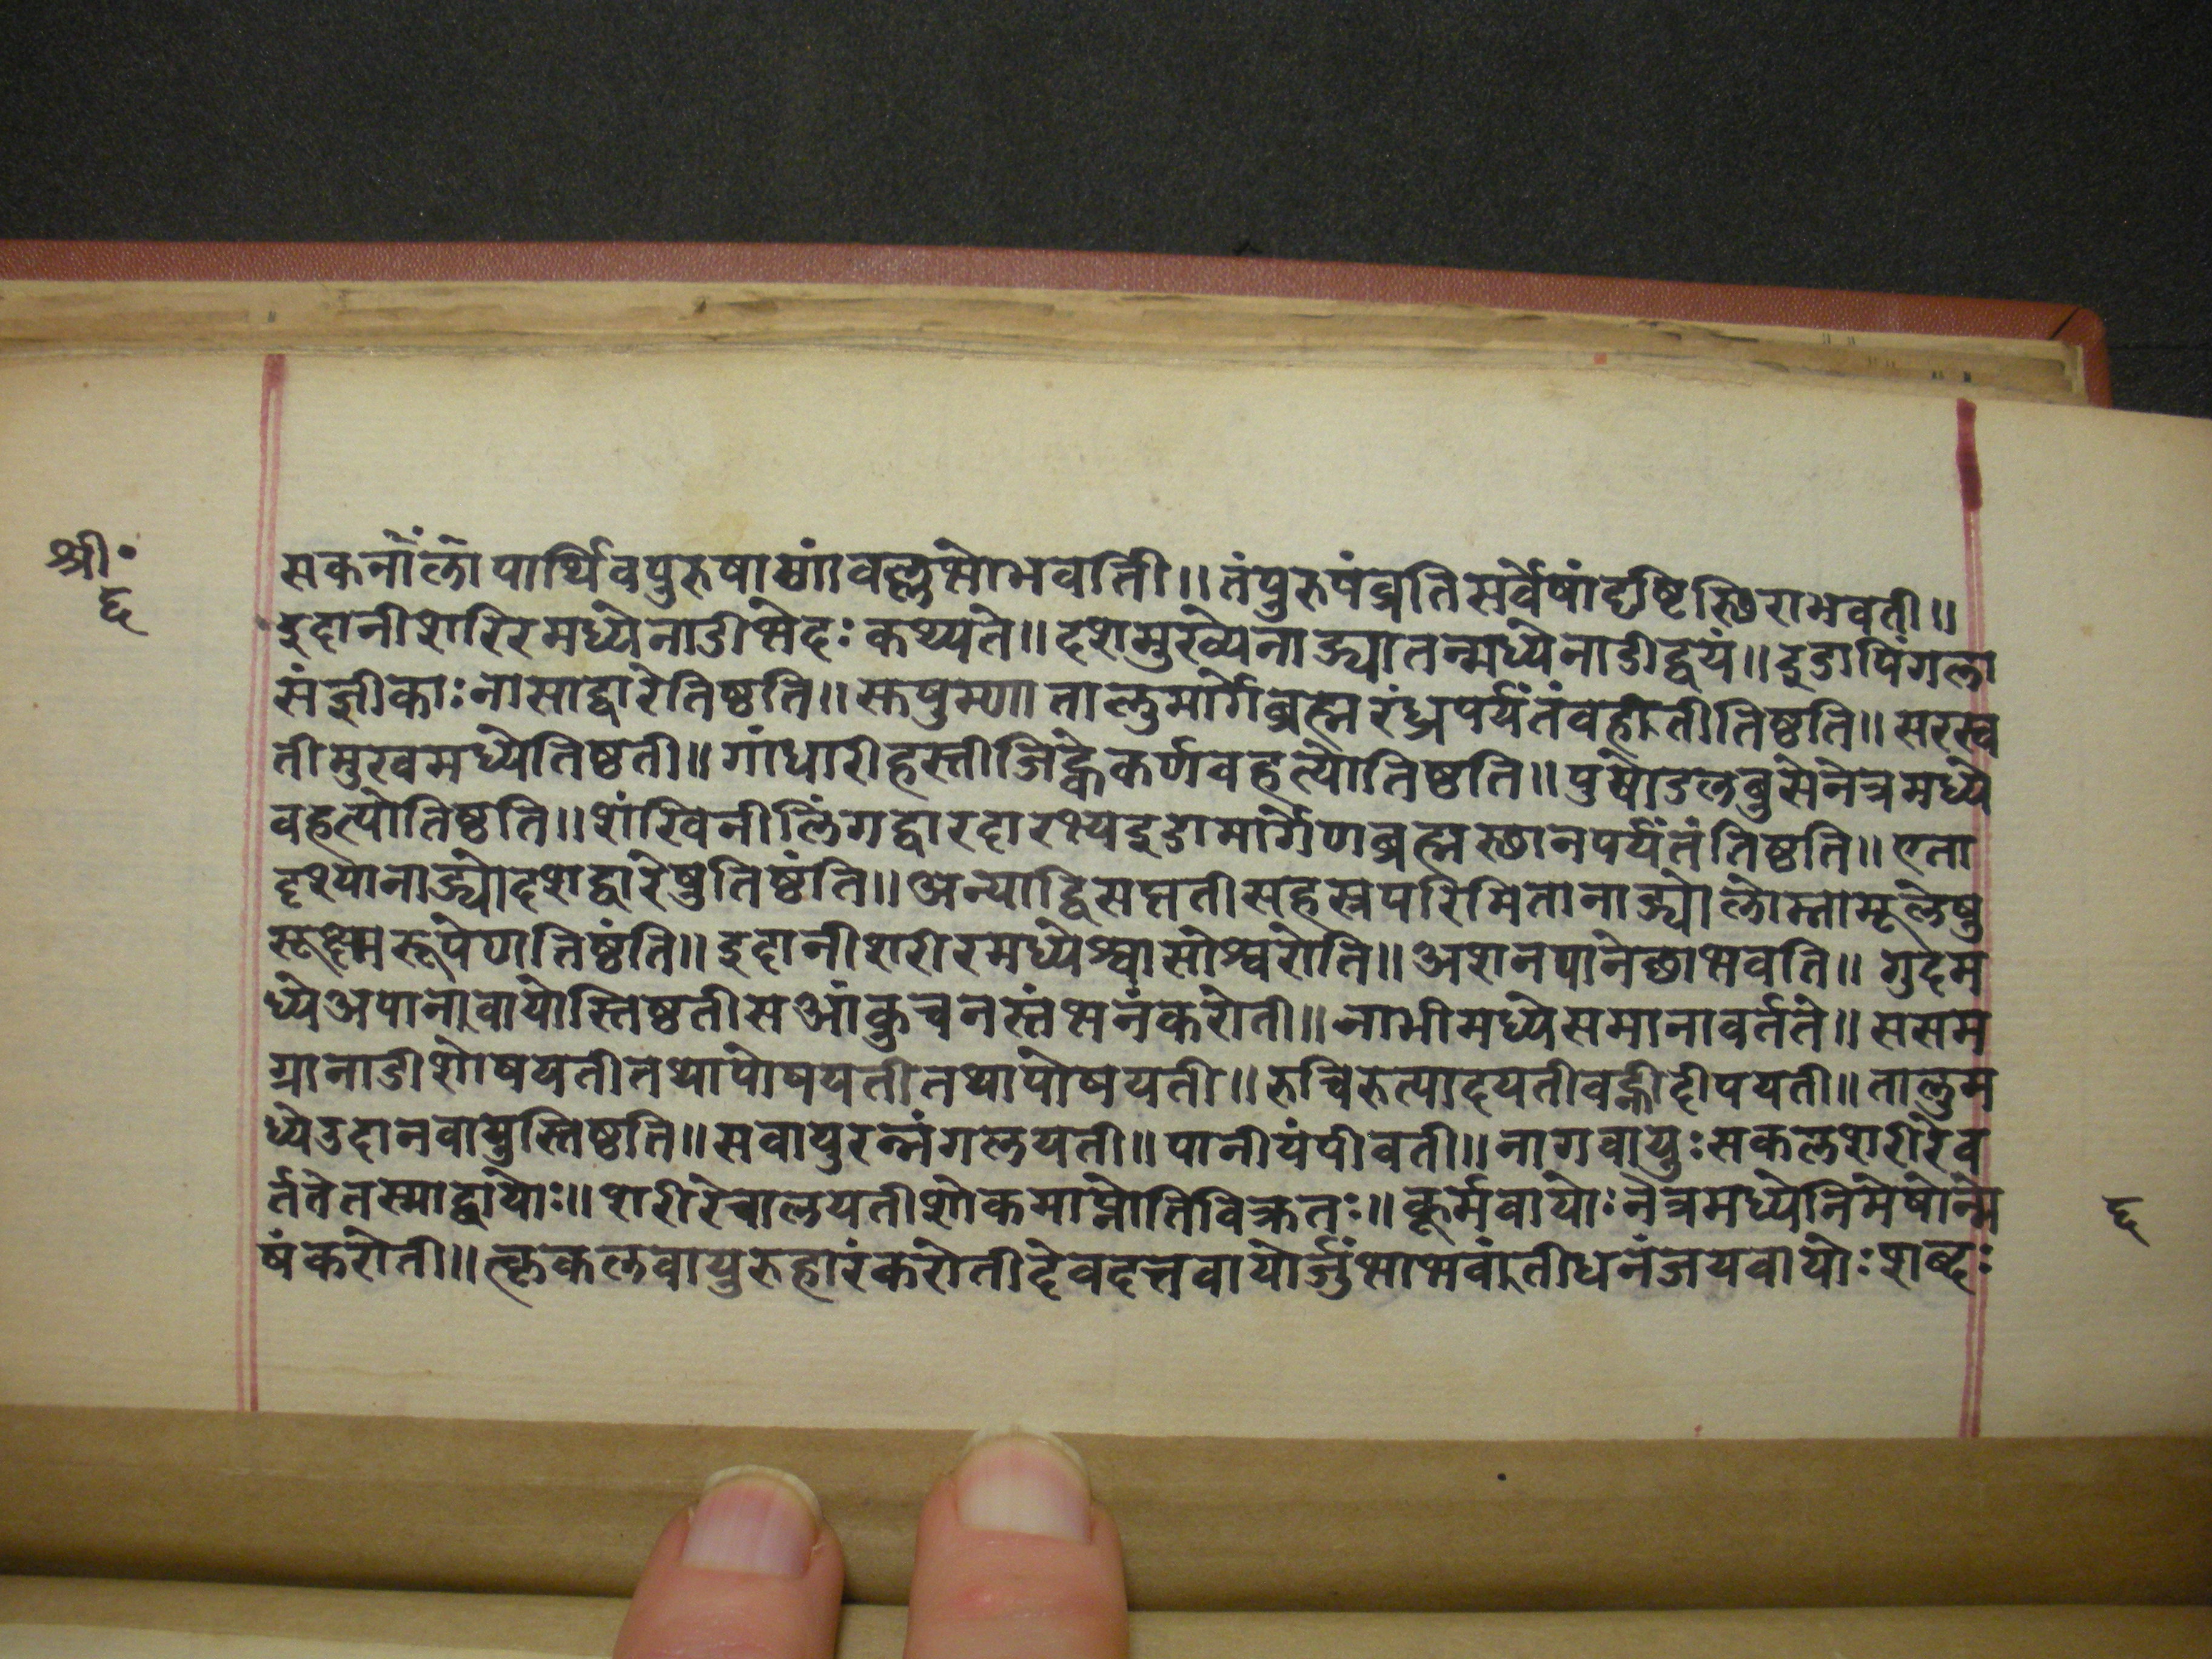 श्री॰
६
सकनौलौपार्थिवपुरुषाणांवल्लभोभवति॥तंपुरुषंप्रतिसर्वेषांदृष्टिस्छिराभवती॥
इदानीशरिरमध्येनाडीभेदःकथ्यते॥दशमुख्येनाड्यातन्मध्येनाडीद्वयं॥इडापिंगला
संज्ञीकाःनासाद्वारेतिष्ठति॥सपुम्णातालुमार्गेब्रह्मरंध्रपर्यंतंवहतीतिष्ठति॥सरस्व
तीमुखमध्येतिष्ठती॥गांधारीहस्तीजिह्वेकर्णवहत्योतिष्ठति॥पुषोऽलबुसेनेत्रमध्ये
वहत्योतिष्ठति॥शंखिनीलिंगद्वारदारभ्यइडामार्गेणब्रह्मस्छानपर्यंतंतिष्ठति॥एता
दृश्योनाड्योदशद्वारेषुतिष्ठंति॥अन्याद्विसप्ततीसहस्त्रपरिमितानाड्योलोम्नामूलेषु
सूक्ष्मरूपेणतिष्ठंति॥इदानीशरीरमध्येश्वासोश्वरोति॥अशनपानेछाभवति॥गुदम
ध्येअपानावायोस्तिष्ठतीसआंकुचनस्तंभनंकरोती॥नाभीमध्येसमानावर्तते॥ससम
ग्रानाडीशोषयतीतथापोषयतीतथापोषयती॥रुचिरुत्पादयतीवह्नीदीपयती॥तालुम
ध्येउदानवायुस्तिष्ठति॥सवायुरन्नंगलयती॥पानीयंपीवती॥नागवायुःसकलशरीरेव
र्ततेतस्माद्वायोः॥शरीरेचालयतीशोकमाप्नोतिविक्रतः॥कूर्मवायोःनेत्रमध्येनिमेषोन्मे
षंकरोती॥कृकलवायुरुहारंकरोतीदेवदत्तवायोर्जुंभाभवतीधनंजयवायोःशब्दः
६